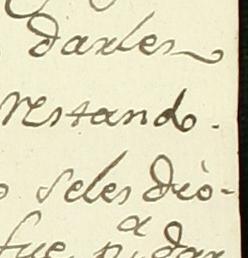 darles
restando.
o seles diò-
fue pᵃ dar